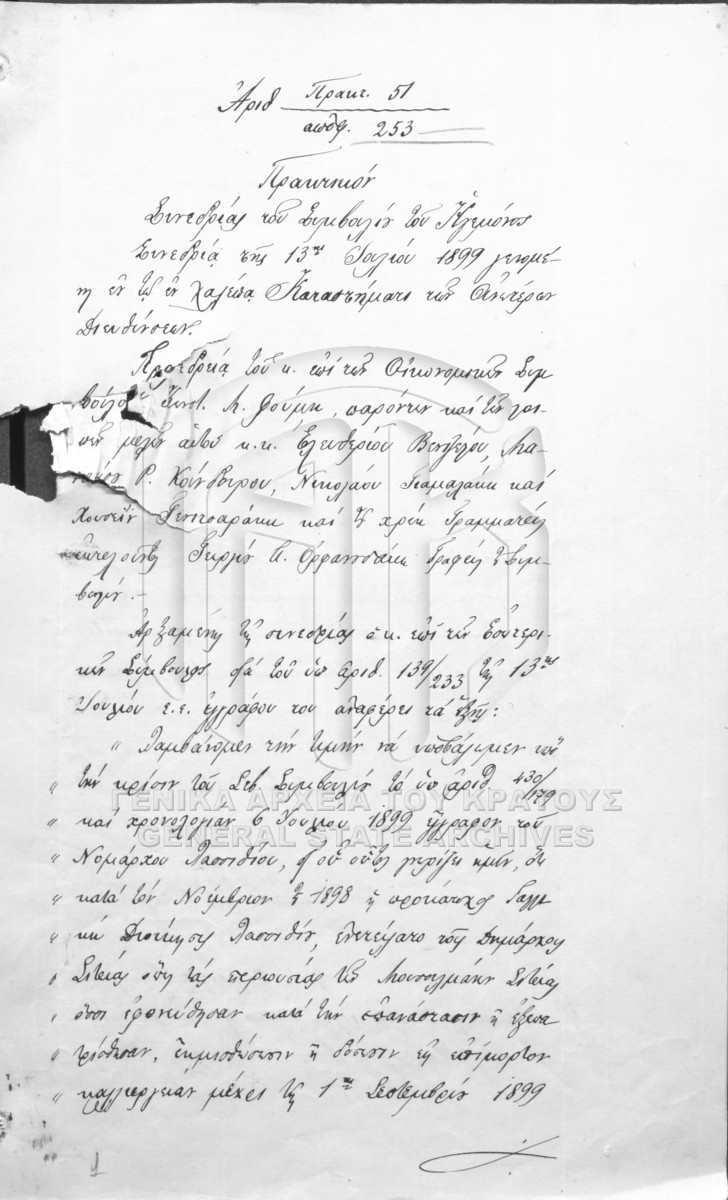 Ἀριθ Πρακτ. 51
αποφ. 253
Πρακτικόν
Συνεδρίας τοῦ Συμβουλίου τοῦ Ἡγεμόνος
Συνεδρία τῆς 13ης Ἰουλίου 1899 γενομέ-
νη ἐν τῷ ἐν Χαλέπᾳ Καταστήματι τῶν Ἀνωτέρων
Διευθύνσεων.
Προεδρείᾳ τοῦ κ. ἐπὶ τῶν Οἰκονομικῶν Συμ
βούλου Κωνστ. Μ. Φούμη, παρόντων καὶ τῶν λοι-
πῶν μελῶν αὐτοῦ κ.κ. Ἐλευθερίου Βενιζέλου, Μα-
νούσου Ρ. Κούνδουρου, Νικολάου Γιαμαλάκη καὶ
Χουσεΐν Γενιτσαράκη καὶ τοῦ χρέη Γραμματέως
ἐκτελοῦντος Γεωργίου Ορφανουδάκη Γραφέως τοῦ Συμ-
βουλίου.-
Ἀρξαμένης τῆς συνεδρίας ὁ κ. ἐπὶ τῶν Ἐσωτερι-
κῶν Σύμβουλος διὰ τοῦ ὑπ ἀριθ. 139/233 τῆς 13ης
Ἰουλίου ε.ε. ἐγγράφου του ἀναφέρει τὰ ἑξῆς:
" Λαμβάνομεν τὴν τιμὴν νὰ ὑποβάλωμεν ὑπὸ
" τὴν κρίσιν τοῦ Σεβ. Συμβουλίου τὸ ὑπ ἀριθ 430/179
" καὶ χρονολογίαν 6 Ἰουλίου 1899 ἔγγραφον τοῦ
" Νομάρχου Λασιθίου, δι' οὗ οὗτος γνωρίζει ἡμῖν, ὅτι
" κατὰ τὸν Νοέμβριον τοῦ 1898 ἡ προκάτοχος Γαλλι
" κὴ Διοίκησις Λασσιθίου, ἐνετείλατο τοῖς Δημάρχοις
" Σητείας ὅπως τὰς περιουσίας τῶν Μουσουλμάνων Σητείας
" ὅσοι ἐφονεύθησαν κατὰ τὴν ἐπανάστασιν ἢ ἐξεπα
" τρίσθησαν, ἐκμισθώσωσιν ἢ δώσωσιν εἰς ἐπίμορτον
" καλλιέργειαν μέχρι τῆς 1ης Σεπτεμβρίου 1899
1
ΓΕΝΙΚΑ ΑΡΧΕΙΑ ΤΟΥ ΚΡΑΤΟΥΣ
GENERAL STATE ARCHIVES